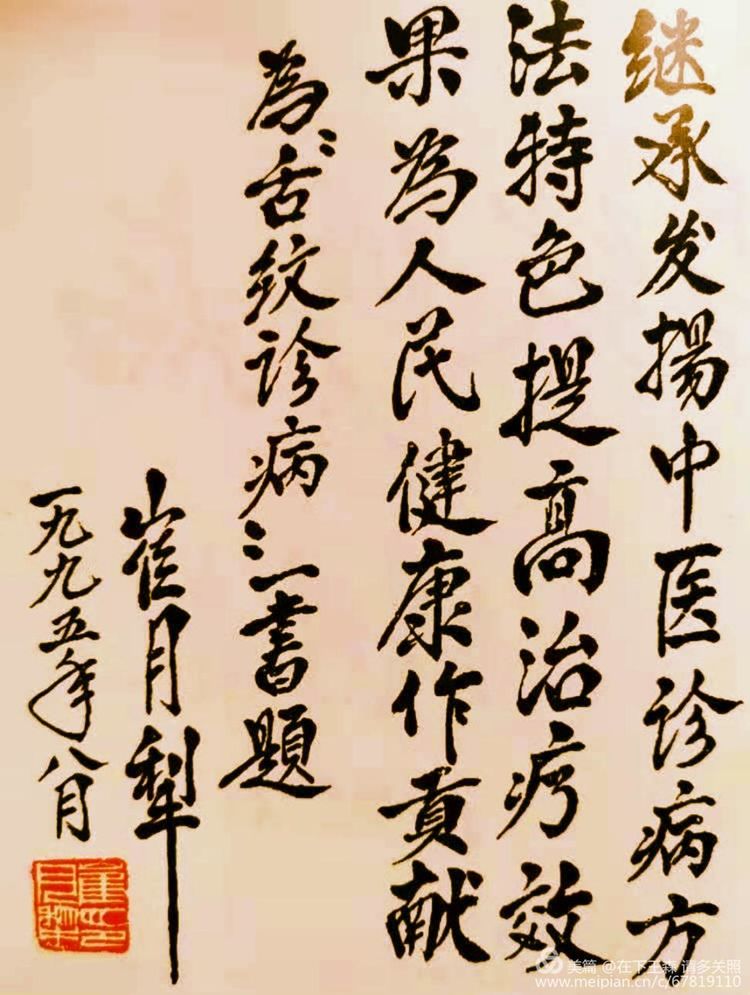 继承发揚中医诊病方
法特色提高治疗效
果為人民健康作貢献
為“舌纹诊病”一書題
崔月犁
一九九五年八月
崔月犁印
美篇 @在下王森 请多关照
www.meipian.cn/c/67819110